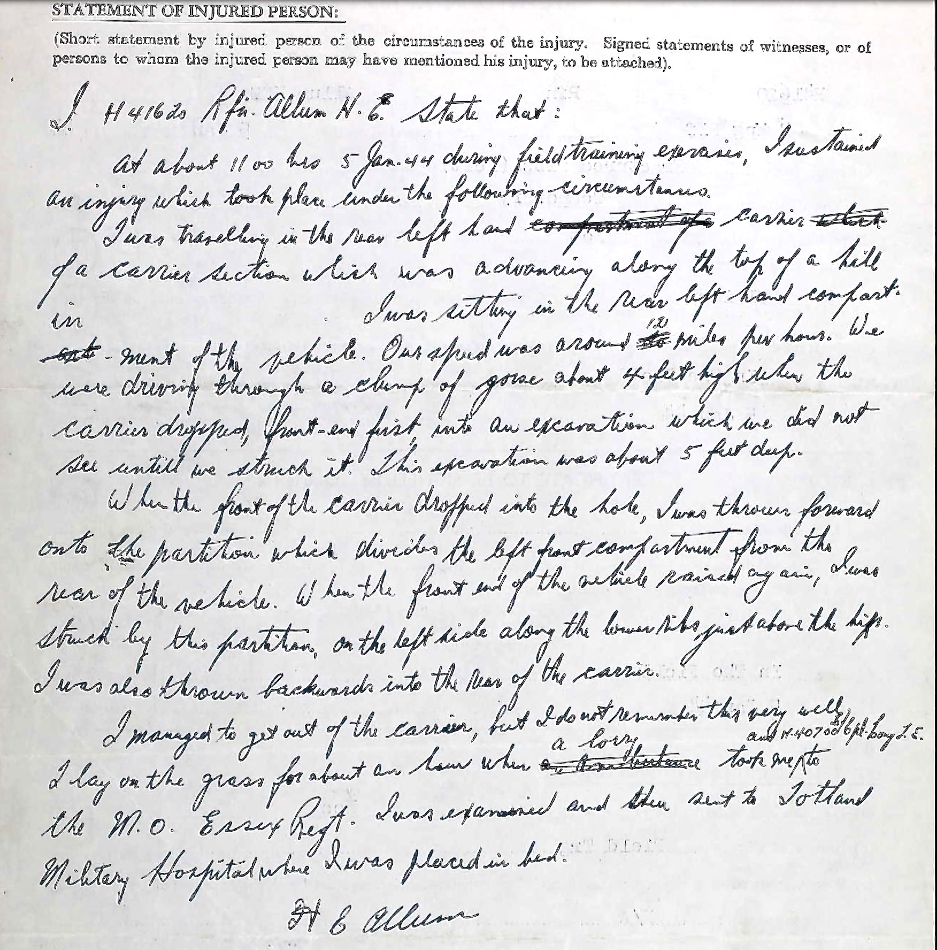 STATEMENT OF INJURED PERSON:
(Short statement by injured person of the circumstances of the injury. Signed statements of witnesses, or of
persons to whom the injured person may have mentioned his injury, to be attached).
I H41620 Rfn. Allum H. E. State that:
At about 1100 hrs 5 Jan. 44 during field training exercises, I sustained
an injury which took place under the following circumstances.
I was travelling in the rear left hand compartment of carrier which
of a carrier section which was advancing along the top of a hill
in I was sitting in the rear left hand compart-
-ment of the vehicle. Our speed was around 12 miles per hour. We
were driving through a clump of gorse about 4 feet high when the
carrier dropped, front-end first, into an excavation which we did not
see untill we struck it. This excavation was about 5 feet deep.
When the front of the carrier dropped into the hole, I was thrown forward
onto the partition which divides the left front compartment from the
rear of the vehicle. When the front end of the vehicle raised again, I was
struck by this partition, on the left side along the lower ribs just above the hip.
I was also thrown backwards into the rear of the carrier.
I managed to get out of the carrier, but I do not remember this very well.
and H-40708 Cpl. Long L.E.
a lorry
I lay on the grass for about an hour when an ambulance took me to
the M.O. Essex Regt. I was examined and then sent to Totland
Military Hospital where I was placed in bed.
H E Allum